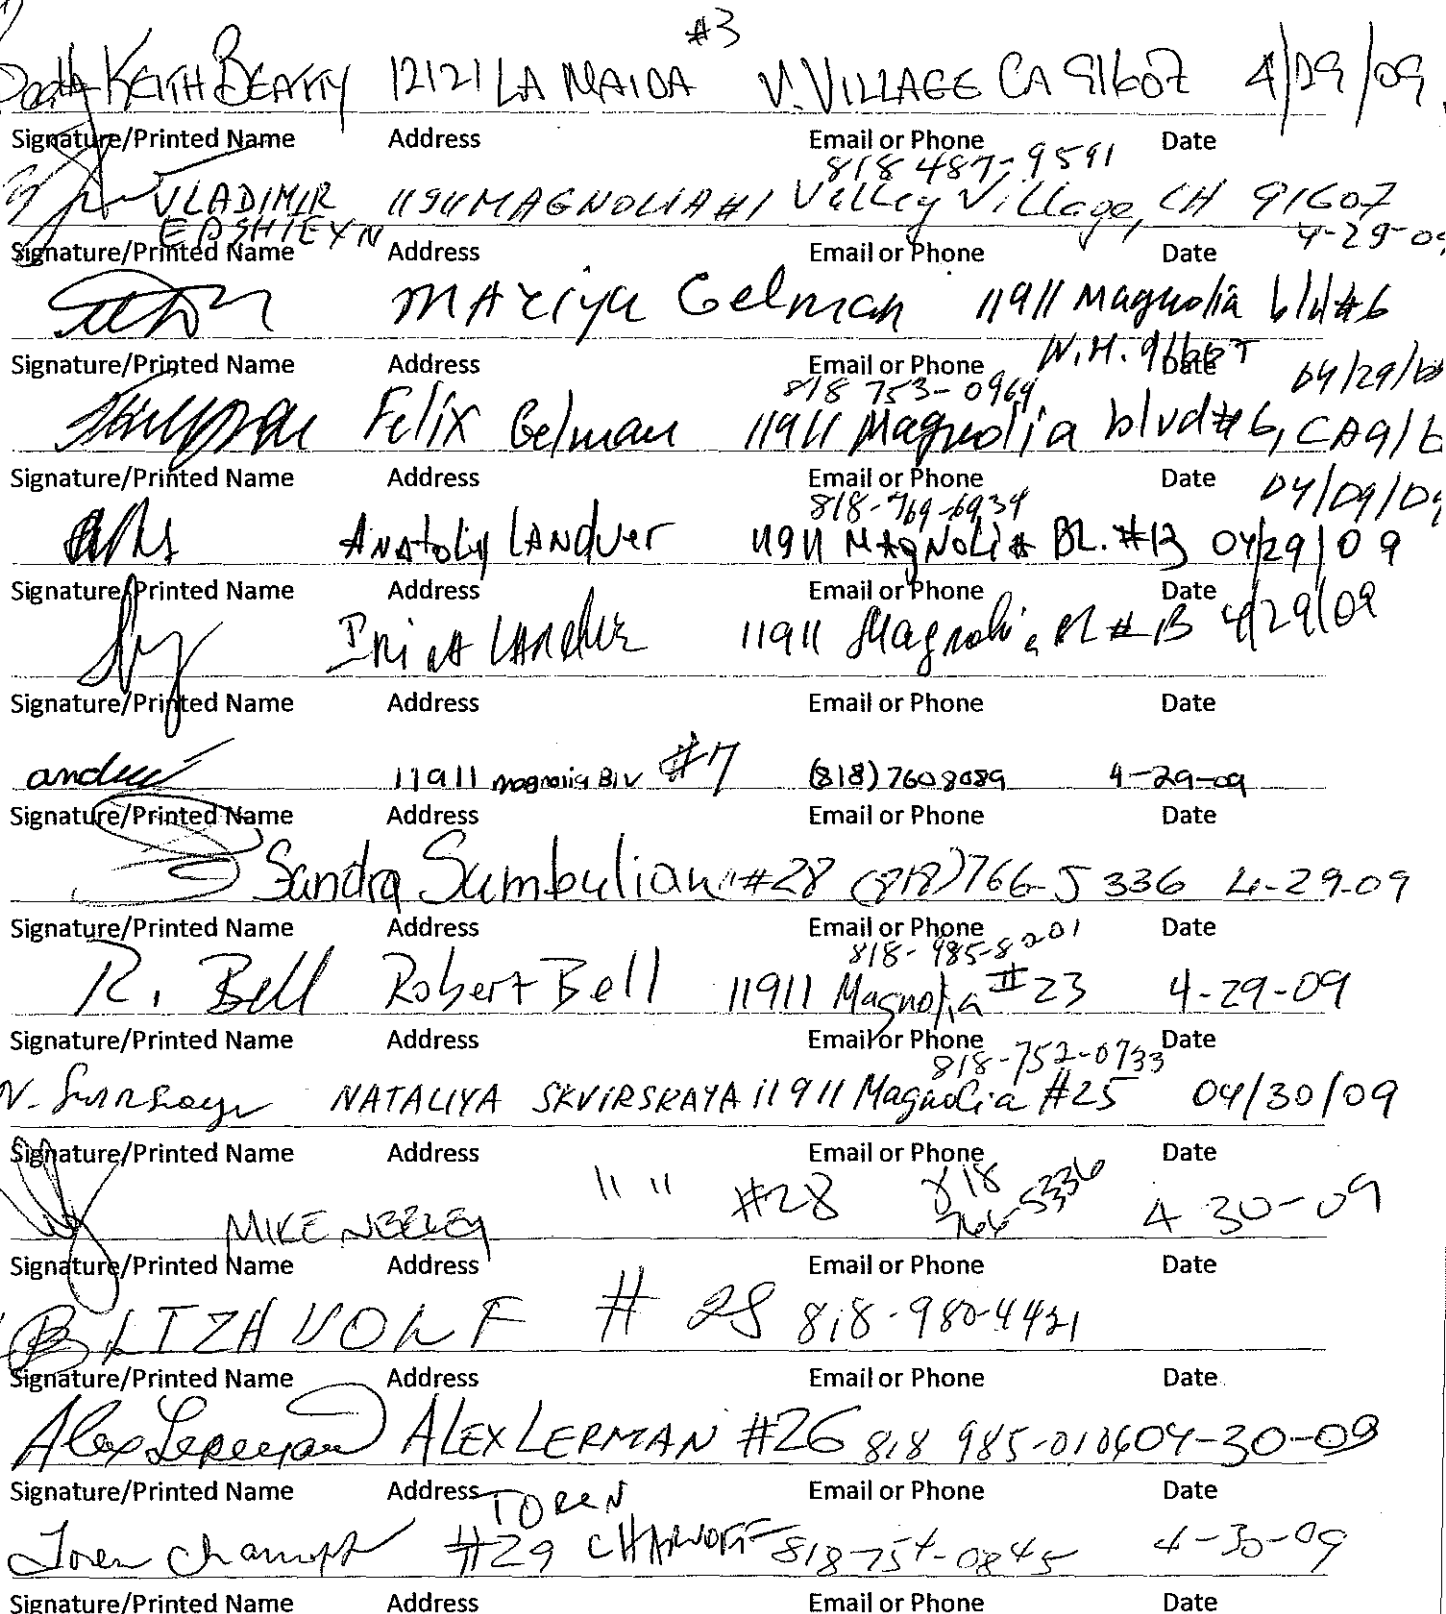 #3
KEITH BEATTY 12121 LA MAIDA V. VILLAGE CA 91607 4/29/09
Signature/Printed Name Address Email or Phone Date
818 487-9591
VLADIMIR 11911 MAGNOLIA #1 Valley Village, CA 91607
EPSHTEYN 4-29-09
Signature/Printed Name Address Email or Phone Date
Mariya Gelman 11911 Magnolia blvd #6
Signature/Printed Name Address Email or Phone Date
818 753-0964 04/29/
Felix Gelman 11911 Magnolia blvd #6, CA 916
Signature/Printed Name Address Email or Phone Date
818-769-6934 04/09/09
Anatoliy LANDVER 11911 MAgNoliA BL. #13 04/29/09
Signature/Printed Name Address Email or Phone Date
IRINA LANDVER 11911 Magnolia Bl #13 4/29/09
Signature/Printed Name Address Email or Phone Date
11911 magnolia Blv #7 (818) 7608089 4-29-09
Signature/Printed Name Address Email or Phone Date
Sandra Sumbulian #28 (818) 766-5336 4-29-09
Signature/Printed Name Address Email or Phone Date
818-985-8201
R. Bell Robert Bell 11911 Magnolia #23 4-29-09
Signature/Printed Name Address Email or Phone Date
818-752-0733
NATALIYA SKVIRSKAYA 11911 Magnolia #25 04/30/09
Signature/Printed Name Address Email or Phone Date
MIKE NEELEY " " #28 818 766-5336 4-30-09
Signature/Printed Name Address Email or Phone Date
LIZA VOLF # 818-980-4421
Signature/Printed Name Address Email or Phone Date
Alex Lerman ALEX LERMAN #26 818 985-0106 04-30-09
Signature/Printed Name Address Email or Phone Date
TOREN
#29 818-754-0845 4-30-09
Signature/Printed Name Address Email or Phone Date